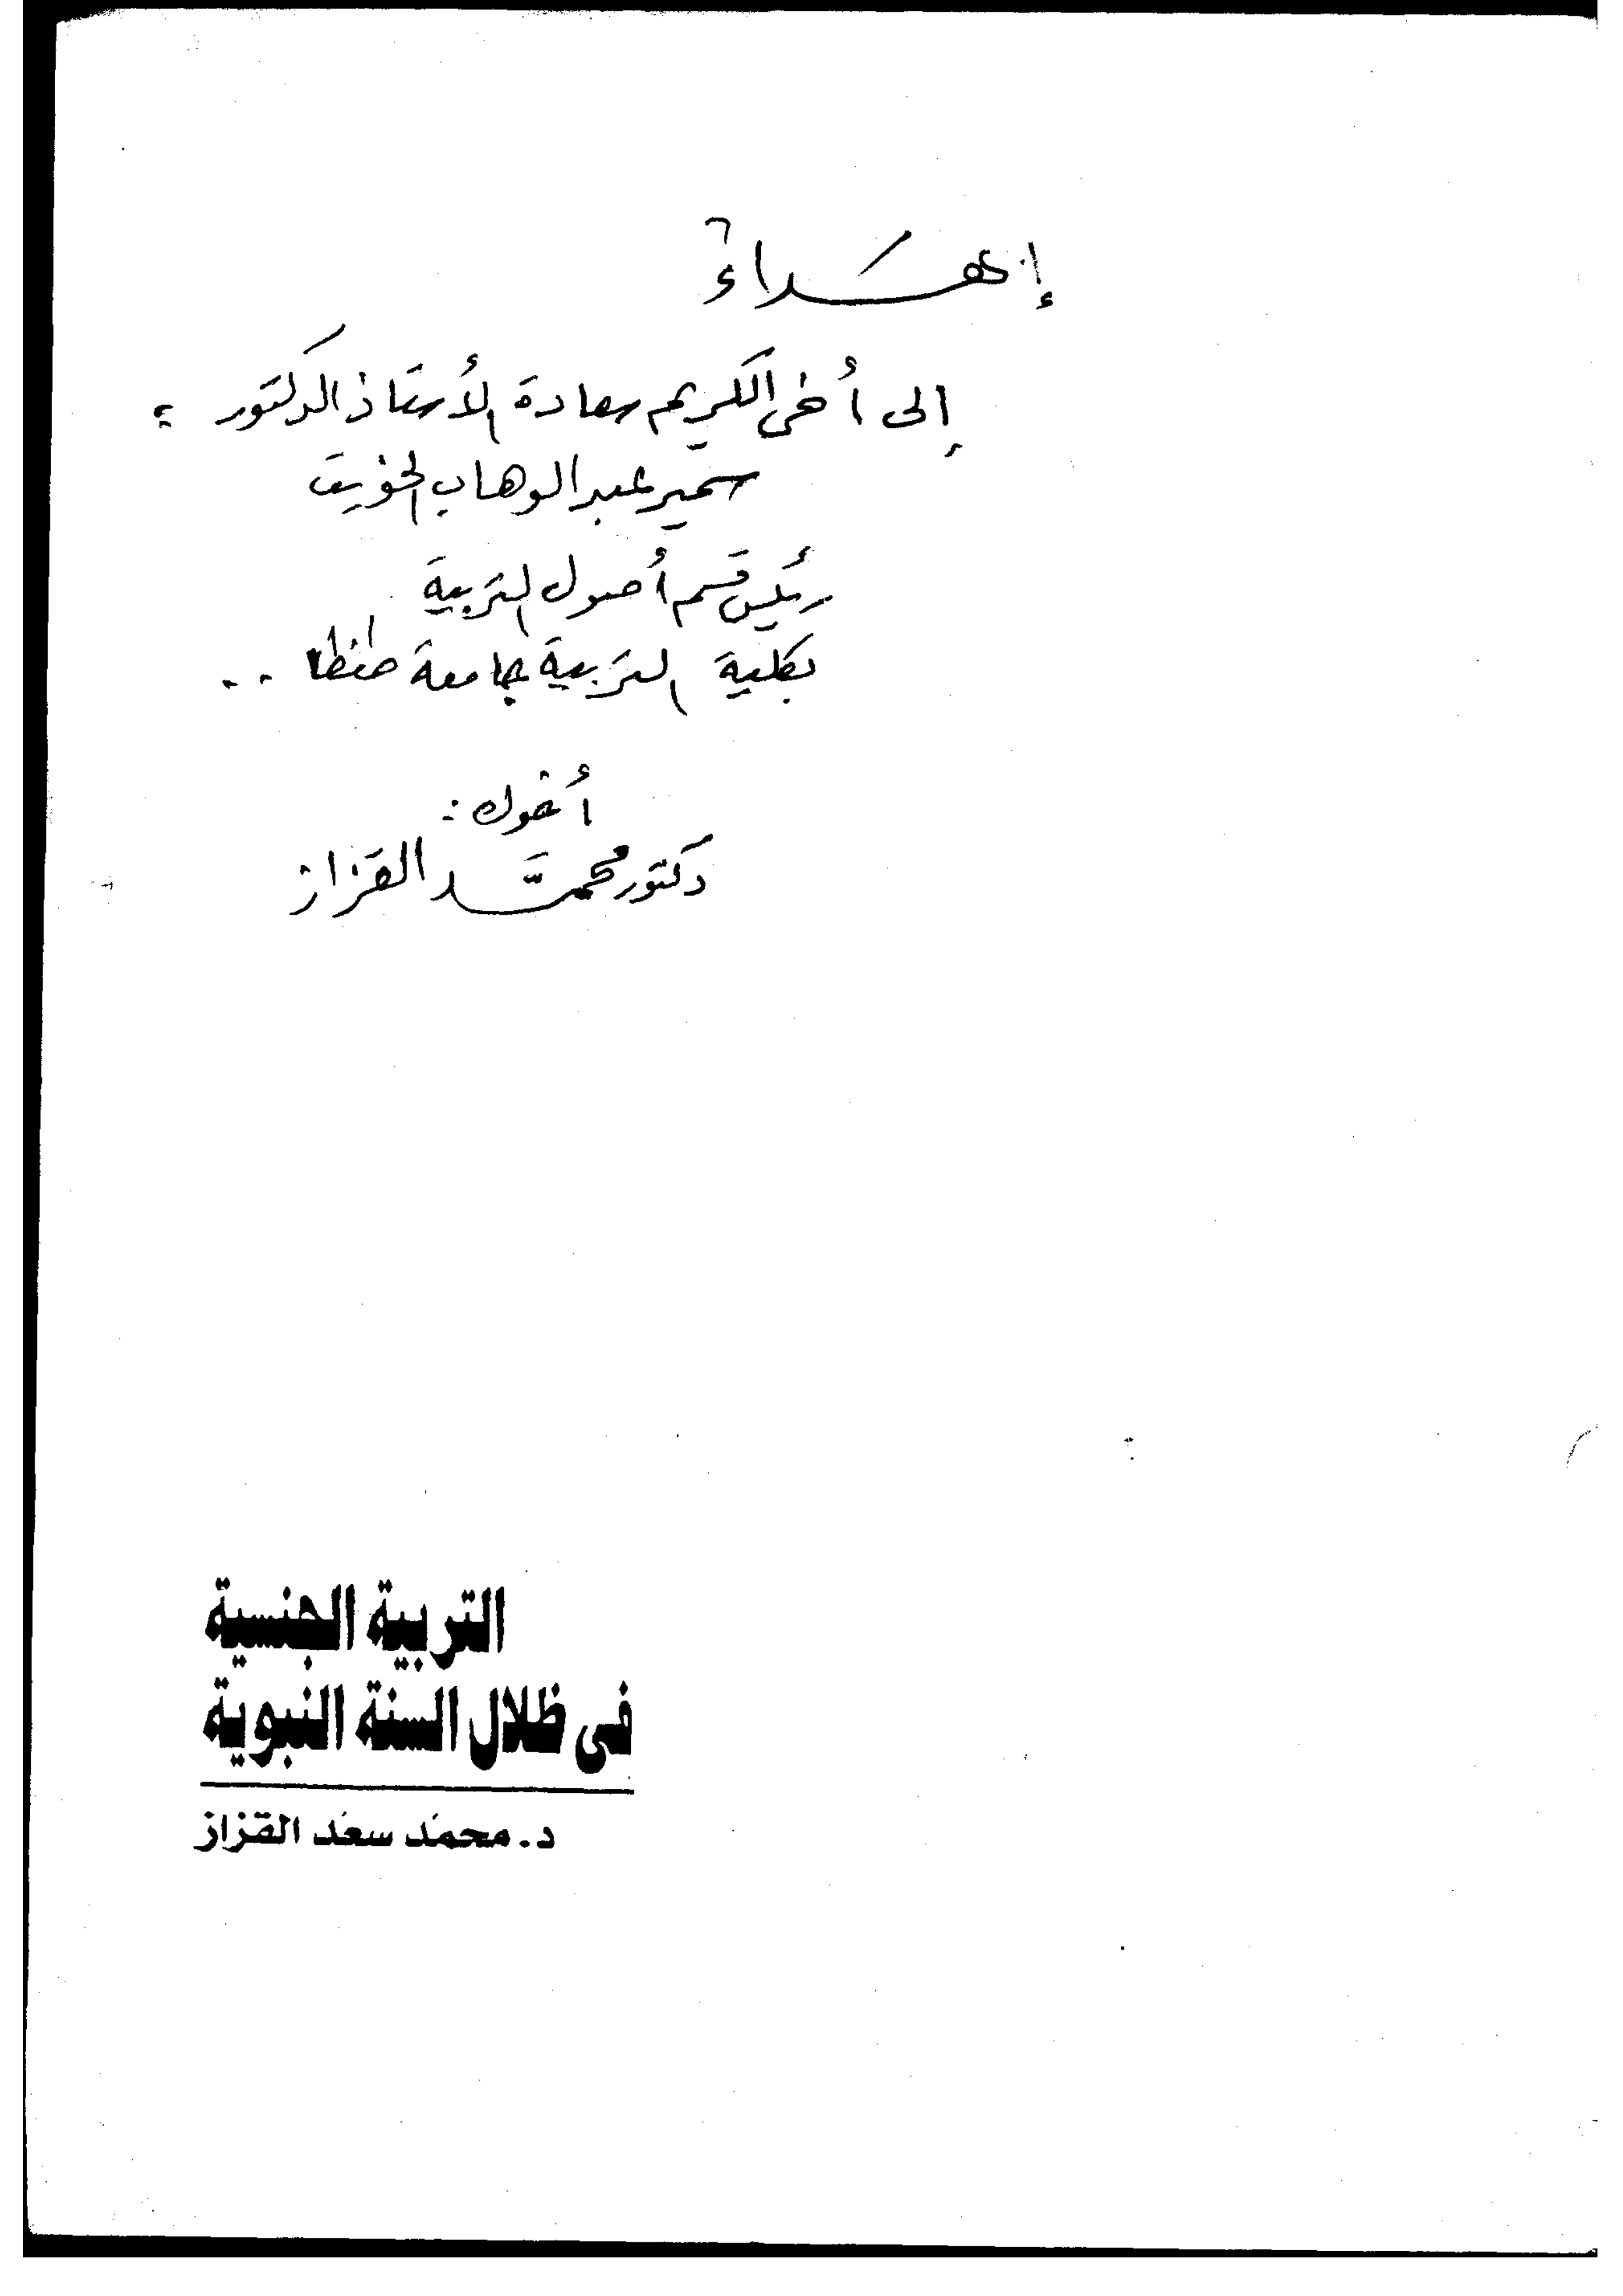 إهداء
إلى أخى الكريم سعادة الأستاذ الدكتور :
سمير عبد الوهاب الخويت
رئيس قسم أصول التربية
بكلية التربية جامعة طنطا ..
أخوك :
دكتور محمَّد القزاز
التربية الجنسية
فى ظلال السنة النبوية
د. محمد سعد القزاز